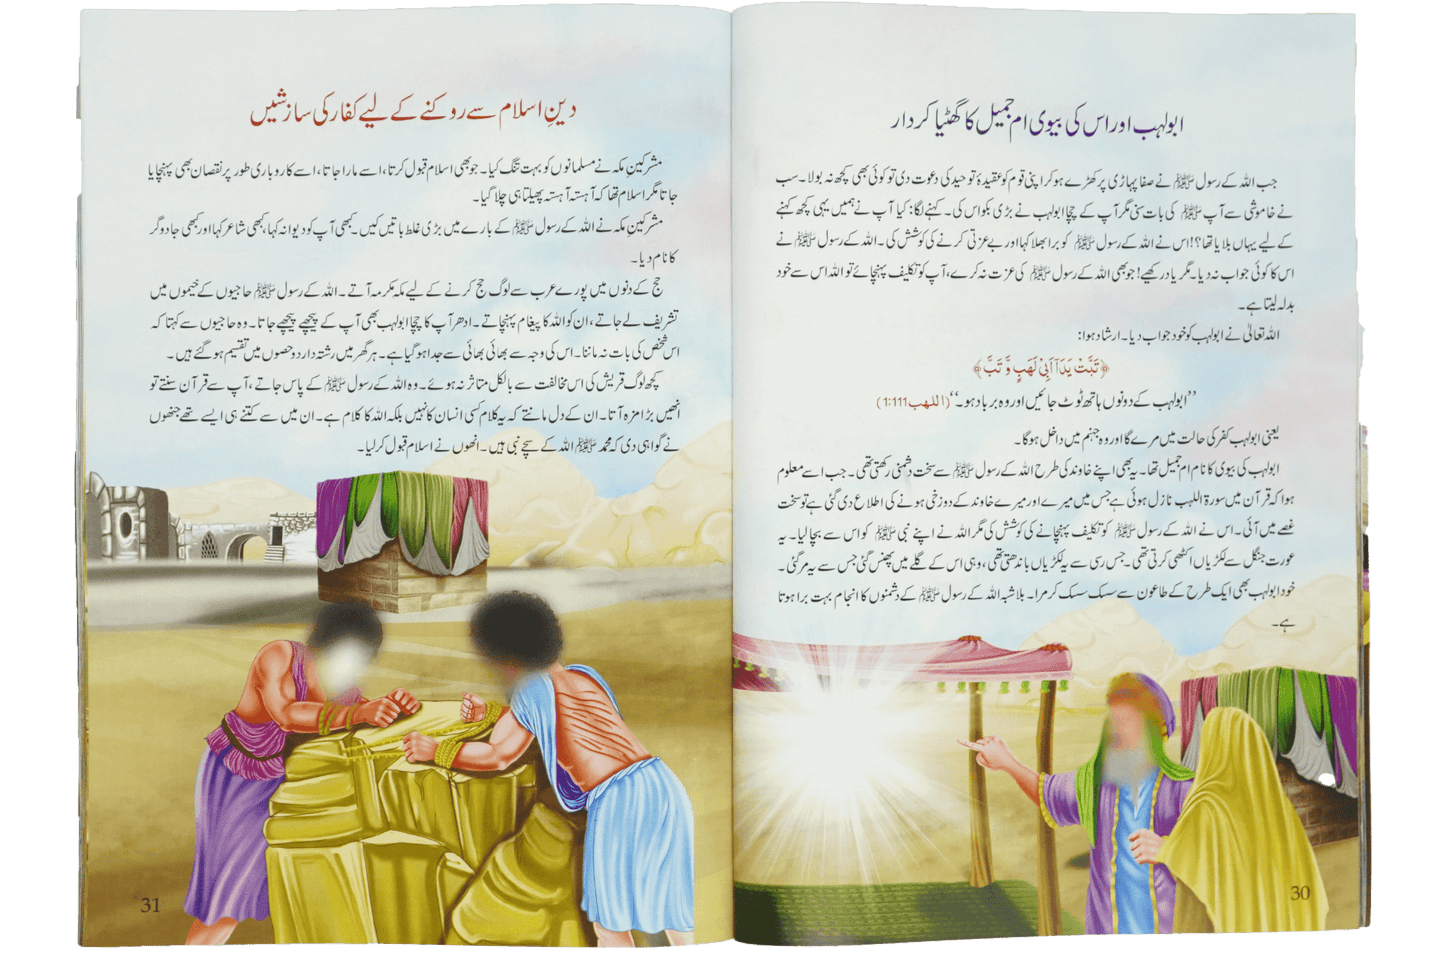 ابولہب اور اس کی بیوی ام جمیل کا گھٹیا کردار
جب اللہ کے رسول ﷺ نے صفا پہاڑی پر کھڑے ہو کر اپنی قوم کو عقیدۂ توحید کی دعوت دی تو کوئی بھی کچھ نہ بولا۔ سب
نے خاموشی سے آپ ﷺ کی بات سنی مگر آپ کے چچا ابولہب نے بڑی بکواس کی۔ کہنے لگا: کیا آپ نے ہمیں یہی کچھ کہنے
کے لیے یہاں بلایا تھا؟! اس نے اللہ کے رسول ﷺ کو برا بھلا کہا اور بے عزتی کرنے کی کوشش کی۔ اللہ کے رسول ﷺ نے
اس کا کوئی جواب نہ دیا۔ مگر یاد رکھیے! جو بھی اللہ کے رسول ﷺ کی عزت نہ کرے، آپ کو تکلیف پہنچائے تو اللہ اس سے خود
بدلہ لیتا ہے۔
اللہ تعالیٰ نے ابولہب کو خود جواب دیا۔ ارشاد ہوا:
﴿تَبَّتْ يَدَآ اَبِيْ لَهَبٍ وَّ تَبَّ﴾
’’ابولہب کے دونوں ہاتھ ٹوٹ جائیں اور وہ برباد ہو۔‘‘ (اللھب 1:111)
یعنی ابولہب کفر کی حالت میں مرے گا اور وہ جہنم میں داخل ہوگا۔
ابولہب کی بیوی کا نام ام جمیل تھا۔ یہ بھی اپنے خاوند کی طرح اللہ کے رسول ﷺ سے سخت دشمنی رکھتی تھی۔ جب اسے معلوم
ہوا کہ قرآن میں سورۃ اللہب نازل ہوئی ہے جس میں میرے اور میرے خاوند کے دوزخی ہونے کی اطلاع دی گئی ہے تو سخت
غصے میں آئی۔ اس نے اللہ کے رسول ﷺ کو تکلیف پہنچانے کی کوشش کی مگر اللہ نے اپنے نبی ﷺ کو اس سے بچا لیا۔ یہ
عورت جنگل سے لکڑیاں اکٹھی کرتی تھی۔ جس رسی سے یہ لکڑیاں باندھتی تھی، وہی اس کے گلے میں پھنس گئی جس سے یہ مر گئی۔
خود ابولہب بھی ایک طرح کے طاعون سے سسک سسک کر مرا۔ بلاشبہ اللہ کے رسول ﷺ کے دشمنوں کا انجام بہت برا ہوتا
ہے۔
30
دینِ اسلام سے روکنے کے لیے کفار کی سازشیں
مشرکینِ مکہ نے مسلمانوں کو بہت تنگ کیا۔ جو بھی اسلام قبول کرتا، اسے مارا جاتا، اسے کاروباری طور پر نقصان بھی پہنچایا
جاتا مگر اسلام تھا کہ آہستہ آہستہ پھیلتا ہی چلا گیا۔
مشرکینِ مکہ نے اللہ کے رسول ﷺ کے بارے میں بڑی غلط باتیں کیں۔ کبھی آپ کو دیوانہ کہا، کبھی شاعر کہا اور کبھی جادوگر
کا نام دیا۔
حج کے دنوں میں پورے عرب سے لوگ حج کرنے کے لیے مکہ مکرمہ آتے۔ اللہ کے رسول ﷺ حاجیوں کے خیموں میں
تشریف لے جاتے، ان کو اللہ کا پیغام پہنچاتے۔ ادھر آپ کا چچا ابولہب بھی آپ کے پیچھے پیچھے جاتا۔ وہ حاجیوں سے کہتا کہ
اس شخص کی بات نہ ماننا۔ اس کی وجہ سے بھائی بھائی سے جدا ہو گیا ہے۔ ہر گھر میں رشتہ دار دو حصوں میں تقسیم ہو گئے ہیں۔
کچھ لوگ قریش کی اس مخالفت سے بالکل متاثر نہ ہوئے۔ وہ اللہ کے رسول ﷺ کے پاس جاتے، آپ سے قرآن سنتے تو
انھیں بڑا مزہ آتا۔ ان کے دل مانتے کہ یہ کلام کسی انسان کا نہیں بلکہ اللہ کا کلام ہے۔ ان میں سے کتنے ہی ایسے تھے جنھوں
نے گواہی دی کہ محمد ﷺ اللہ کے سچے نبی ہیں۔ انھوں نے اسلام قبول کر لیا۔
31